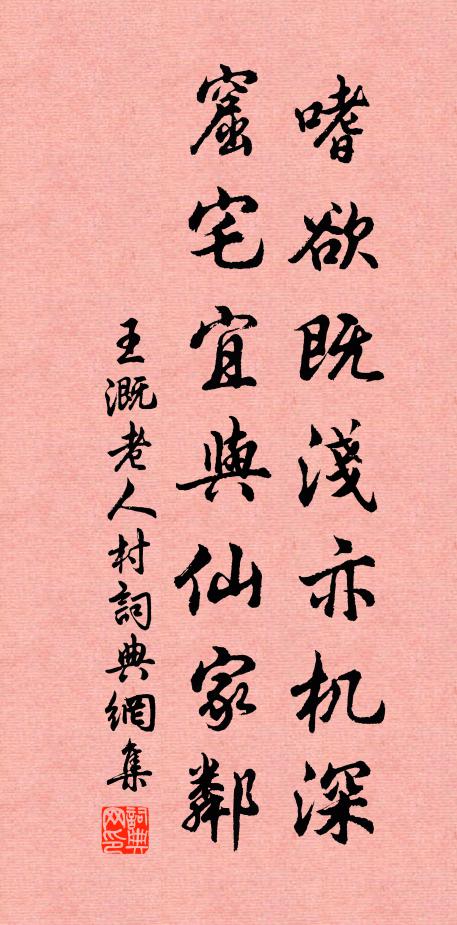 嗜欲既淺亦机深
窟宅宜與仙家鄰
王溉老人村詞典網集
詞典网印